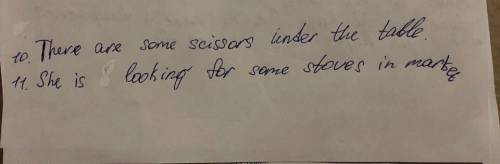 10. There are some scissors under the table.
11. She is looking for some stoves in market